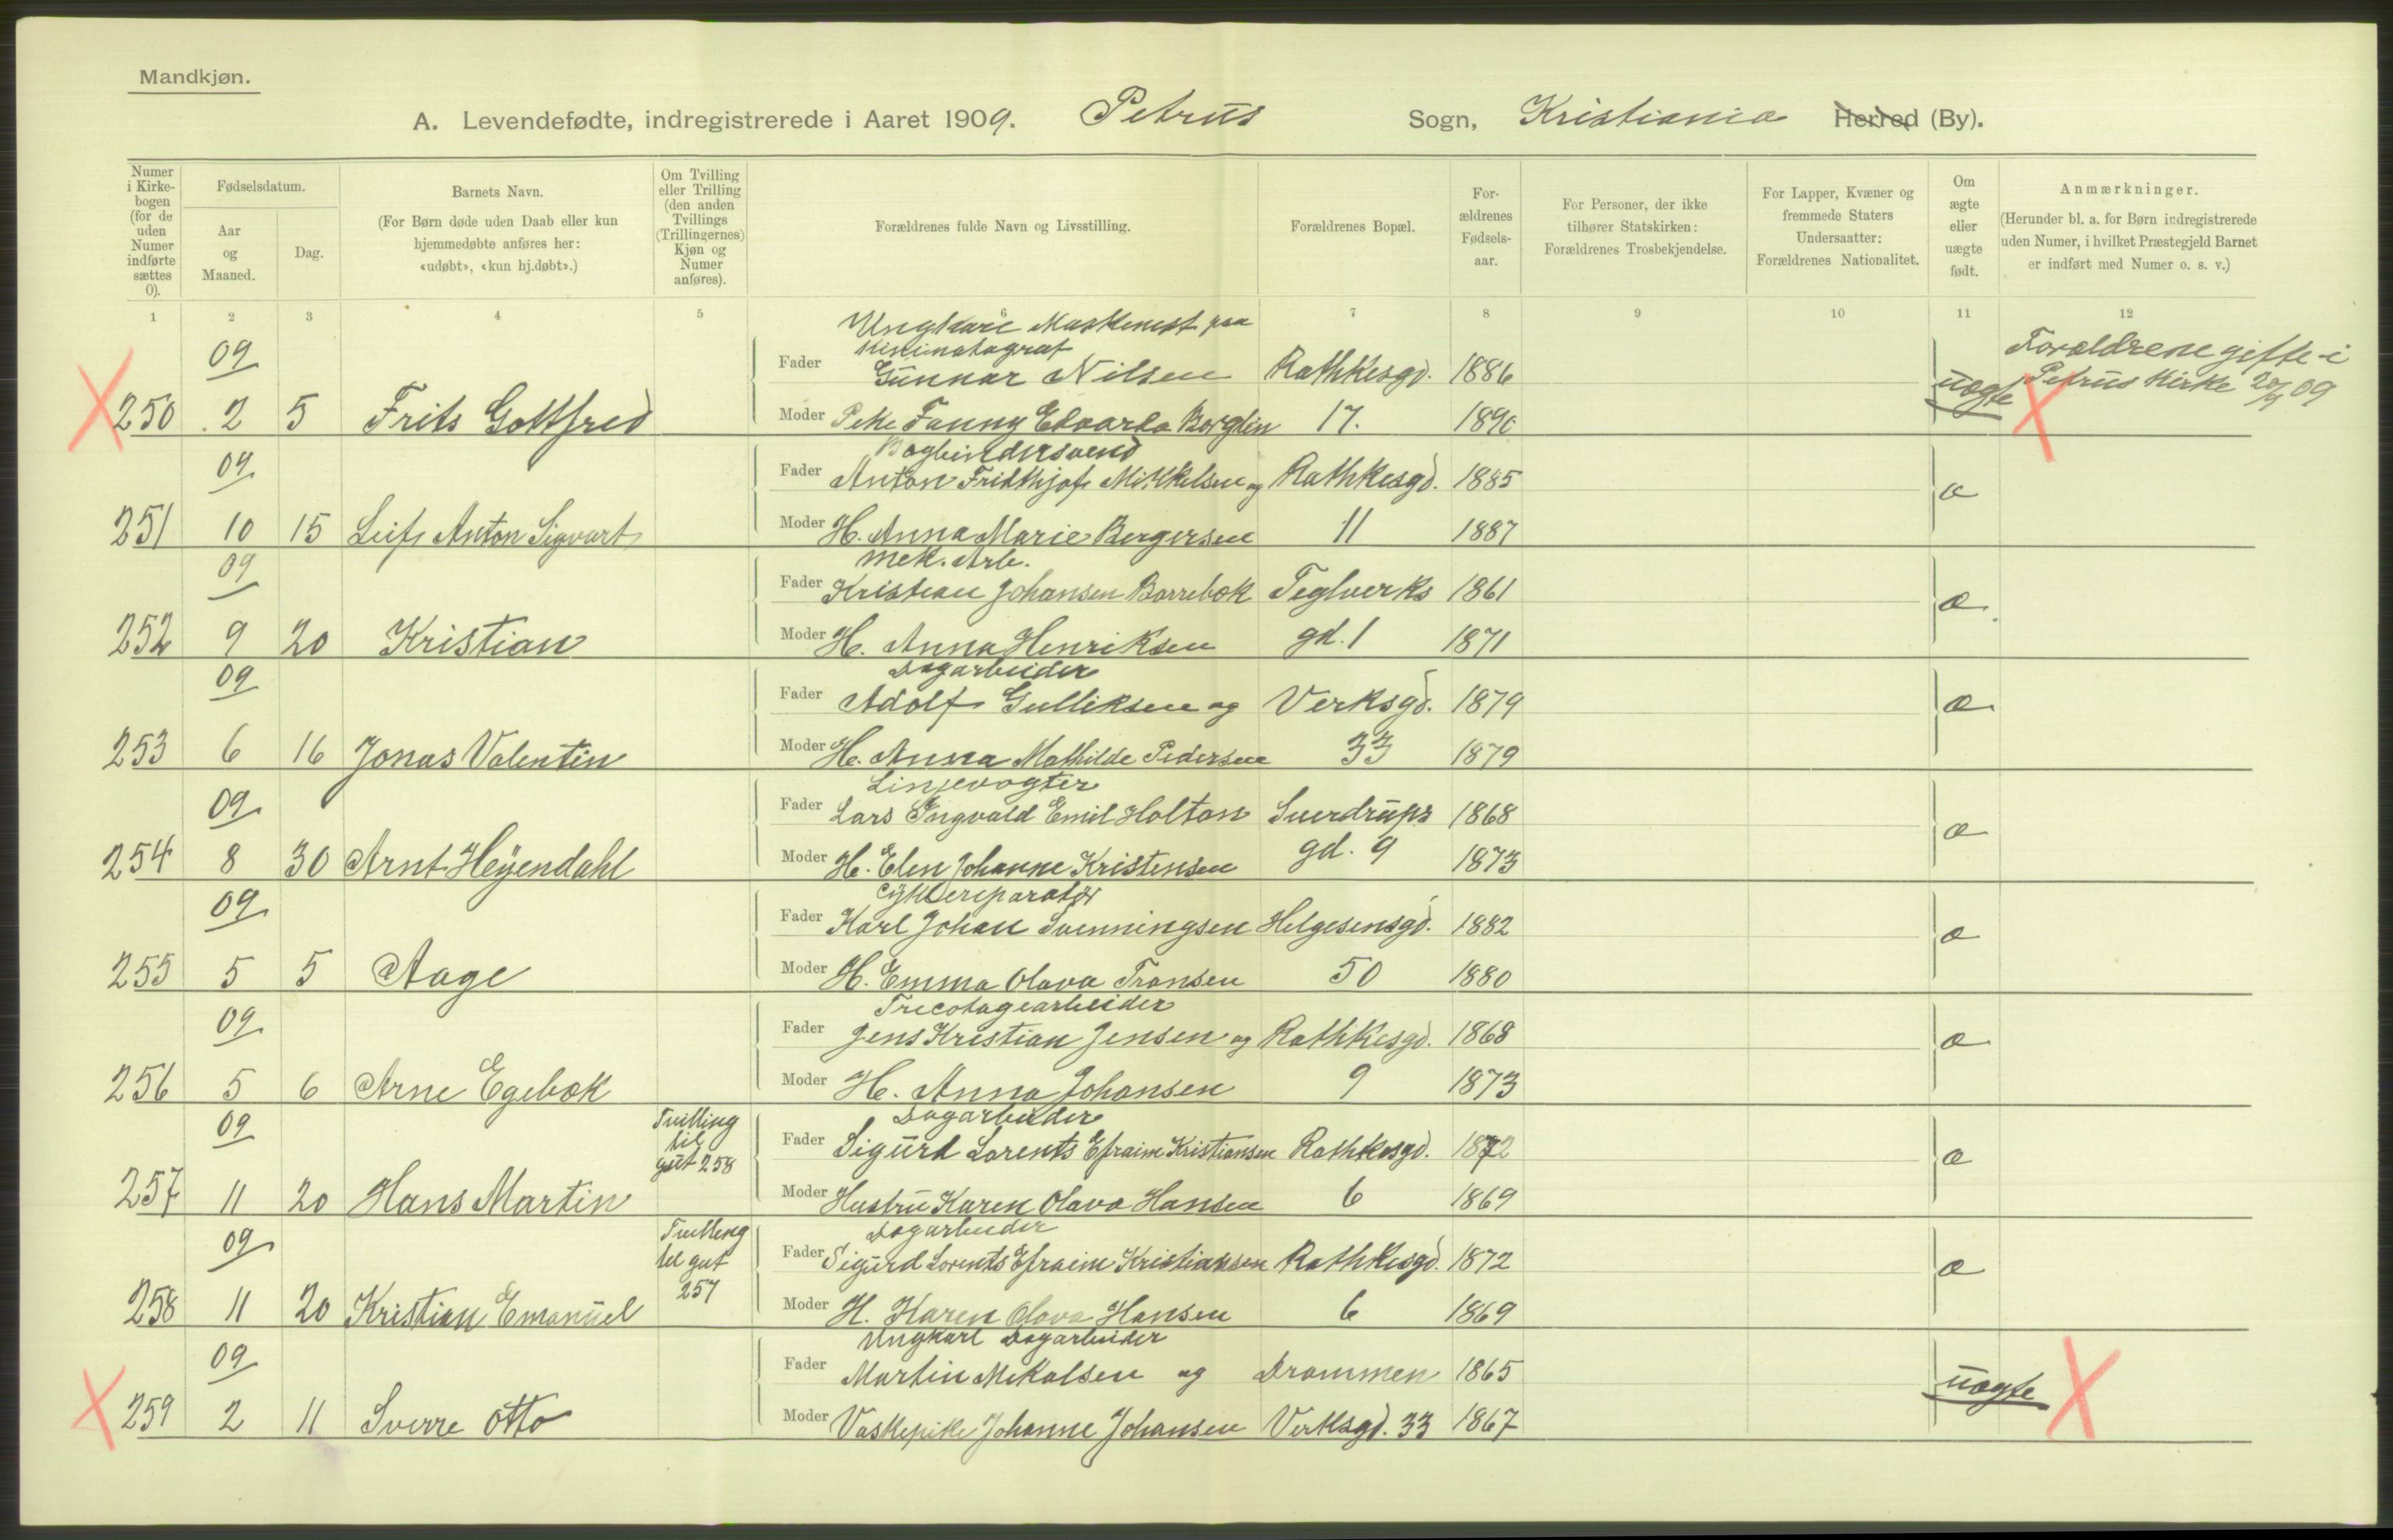 Mandkjøn.
A. Levendefødte, indregistrerede i Aaret 1909. Petrus Sogn, Kristiania Herred (By).
Numer i Kirke-bogen (for de uden Numer indførte sættes 0).
Fødselsdatum.
Aar og Maaned.
Dag.
Barnets Navn.
(For Børn døde uden Daab eller kun hjemmedøbte anføres her: «udøbt», «kun hj.døbt».)
Om Tvilling eller Trilling (den anden Tvillings (Trillingernes) Kjøn og Numer anføres).
Forældrenes fulde Navn og Livsstilling.
Forældrenes Bopæl.
For-ældrenes Fødsels-aar.
For Personer, der ikke tilhører Statskirken: Forældrenes Trosbekjendelse.
For Lapper, Kvæner og fremmede Staters Undersaatter: Forældrenes Nationalitet.
Om ægte eller uægte født.
Anmærkninger.
(Herunder bl. a. for Børn indregistrerede uden Numer, i hvilket Præstegjeld Barnet er indført med Numer o. s. v.)
1 2 3 4 5 6 7 8 9 10 11 12
Ungkare Maskinest paa
Kinimatograf
09 Fader Gunnar Nilsen Rathkesgd. 1886 uægte Forældrene gifte i
250 2 5 Frits Gottfred Moder Pike Fanny Edvarda Borglin 17. 1890 Petrus Kirke 20/9 09
Bogbindersvend
09 Fader Anton Fridthjof Mikkelsen og Rathkesgd. 1885 æ
251 10 15 Leif Anton Sigvart Moder H. Anna Marie Bergersen 11 1887
Mek. Arb.
09 Fader Kristian Johansen Borrebæk Teglverks 1861 æ
252 9 20 Kristian Moder H. Anna Henriksen gd. 1 1871
Dagarbeider
09 Fader Adolf Gulliksen og Verksgd. 1879 æ
253 6 16 Jonas Valentin Moder H. Anna Mathilde Pedersen 33 1879
Linjevogter
09 Fader Lars Ingvald Emil Holton Sverdrups 1868 æ
254 8 30 Arnt Heyendahl Moder H. Elen Johanne Kristensen gd. 9 1873
Cyklereparatør
09 Fader Karl Johan Svenningsen Helgesensgd. 1882 æ
255 5 5 Aage Moder H. Emma Olava Fransen 50 1880
Tricotagearbeider
09 Fader Jens Kristian Jensen og Rathkesgd. 1868 æ
256 5 6 Arne Egebæk Moder H. Anna Johansen 9 1873
Dagarbeider
09 Tvilling til gut 258 Fader Sigurd Lorents Efraim Kristiansen Rathkesgd. 1872 æ
257 11 20 Hans Martin Moder Hustru Karen Olava Hansen 6 1869
Dagarbeider
09 Tvilling til gut 257 Fader Sigurd Lorents Efraim Kristiansen Rathkesgd. 1872 æ
258 11 20 Kristian Emanuel Moder H. Karen Olava Hansen 6 1869
Ungkarl Dagarbeider
09 Fader Martin Mikalsen og Drammen 1865 uægte
259 2 11 Sverre Otto Moder Vaskepike Johanne Johansen Verksgd. 33 1867